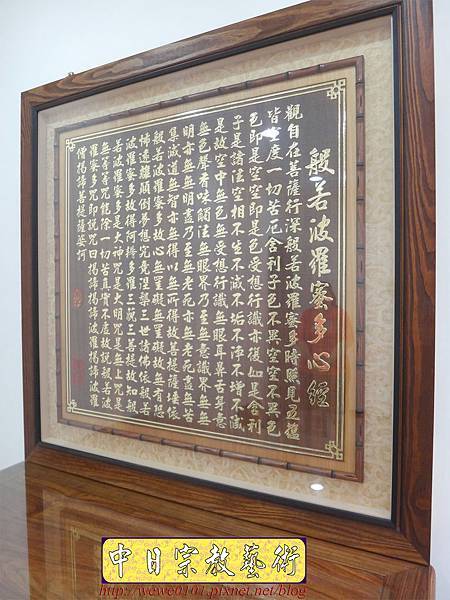 般若波羅蜜多心經
觀自在菩薩行深般若波羅蜜多時照見五蘊
皆空度一切苦厄舍利子色不異空空不異色
色即是空空即是色受想行識亦復如是舍利
子是諸法空相不生不滅不垢不淨不增不減
是故空中無色無受想行識無眼耳鼻舌身意
無色聲香味觸法無眼界乃至無意識界無無
明亦無無明盡乃至無老死亦無老死盡無苦
集滅道無智亦無得以無所得故菩提薩埵依
般若波羅蜜多故心無罣礙無罣礙故無有恐
怖遠離顛倒夢想究竟涅槃三世諸佛依般若
波羅蜜多故得阿耨多羅三藐三菩提故知般
若波羅蜜多是大神咒是大明咒是無上咒是
無等等咒能除一切苦真實不虛故說般若波
羅蜜多咒即說咒曰揭諦揭諦波羅揭諦波羅
僧揭諦菩提薩婆訶
中日宗教藝術
http://wewe0101.pixnet.net/blog